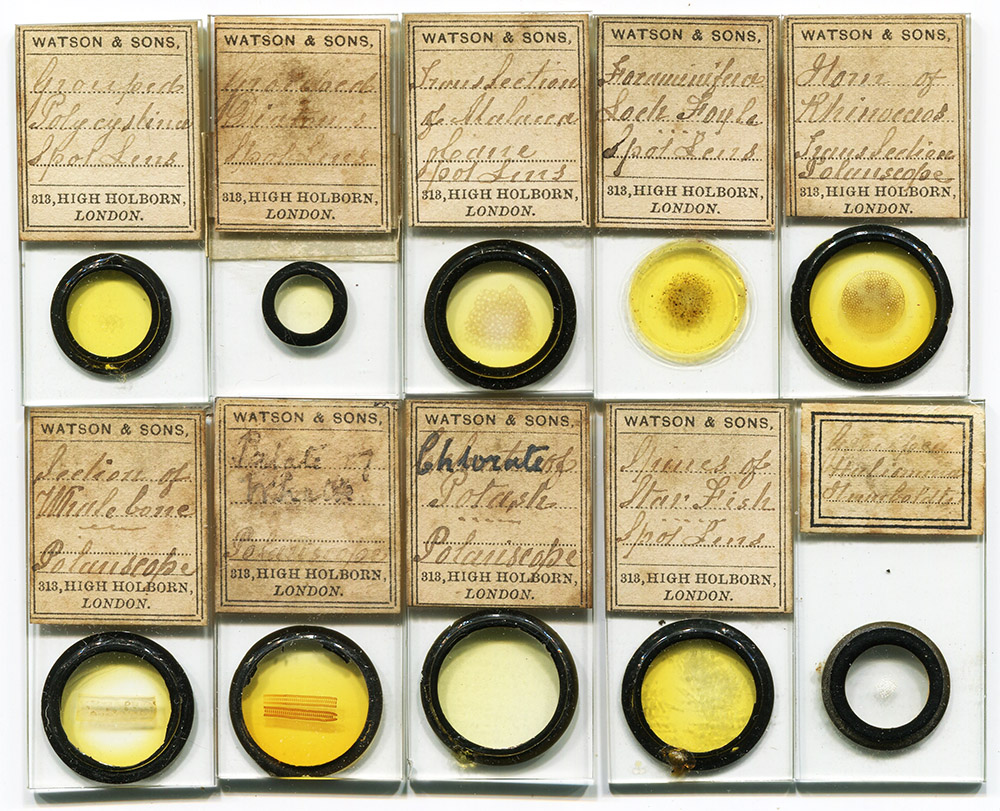 WATSON & SONS,
Grouped
Polycystina
Spot Lens
313, HIGH HOLBORN,
LONDON.
WATSON & SONS,
Grouped
Diatoms
Spot Lens
313, HIGH HOLBORN,
LONDON.
WATSON & SONS,
Transection
of Malacca
Cane
Spot Lens
313, HIGH HOLBORN,
LONDON.
WATSON & SONS,
Foraminifera
Loch Foyle
Spot Lens
313, HIGH HOLBORN,
LONDON.
WATSON & SONS,
Horn of
Rhinoceros
Transection
Polariscope
313, HIGH HOLBORN,
LONDON.
WATSON & SONS,
Section of
Whalebone
Polariscope
313, HIGH HOLBORN,
LONDON.
WATSON & SONS,
Palate of
Whelk
Polariscope
313, HIGH HOLBORN,
LONDON.
WATSON & SONS,
Chlorate of
Potash
Polariscope
313, HIGH HOLBORN,
LONDON.
WATSON & SONS,
Spines of
Star Fish
Spot Lens
313, HIGH HOLBORN,
LONDON.